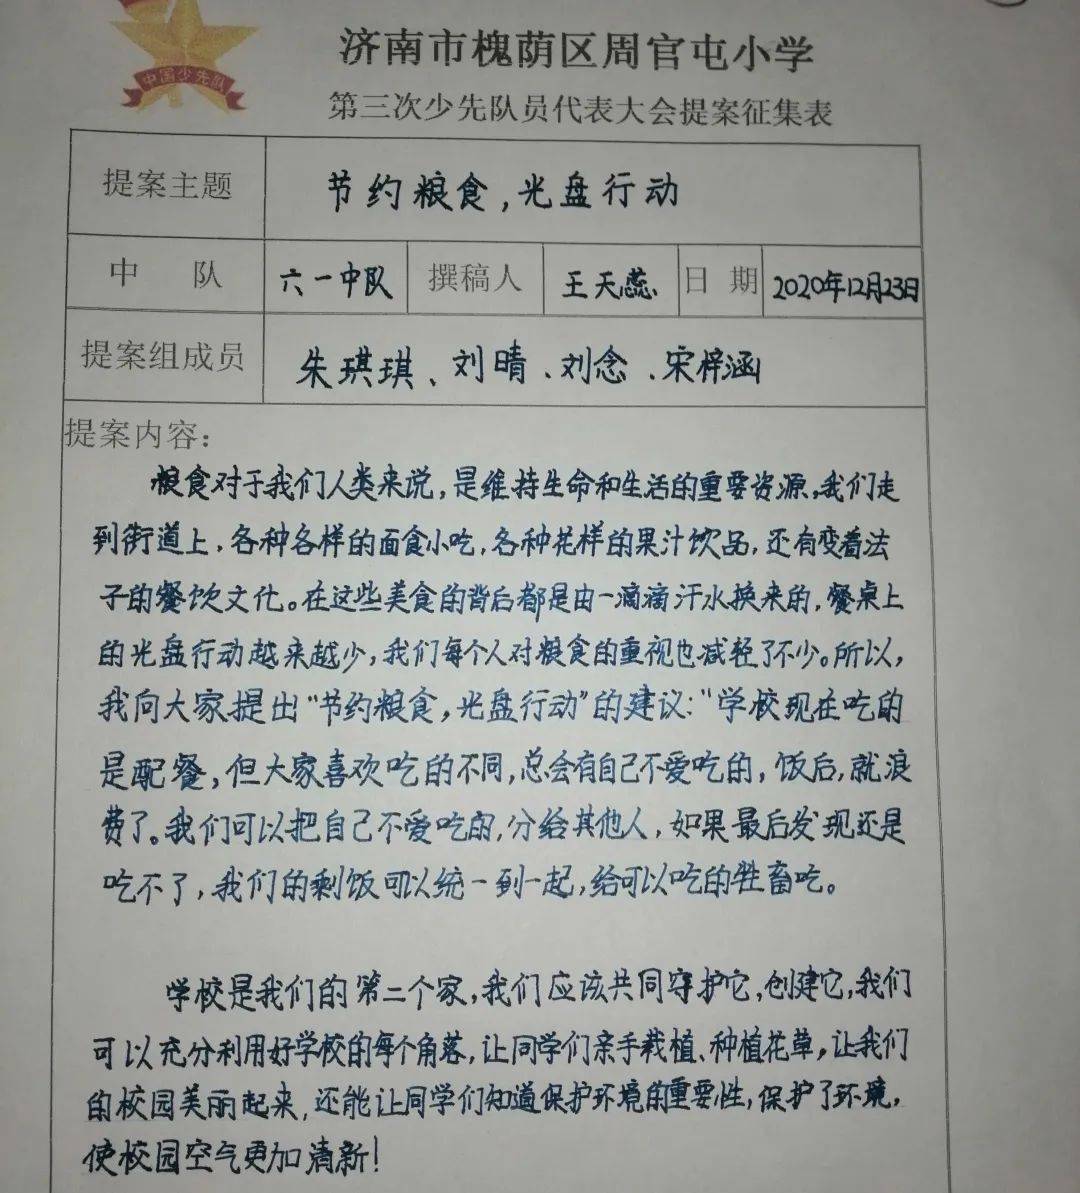 中国少先队
济南市槐荫区周官屯小学
第三次少先队员代表大会提案征集表
提案主题 节约粮食,光盘行动
中 队 六一中队 撰稿人 王天蕊 日 期 2020年12月23日
提案组成员 朱琪琪、刘晴、刘念、宋梓涵
提案内容:
粮食对于我们人类来说,是维持生命和生活的重要资源。我们走
到街道上,各种各样的面食小吃,各种花样的果汁饮品,还有变着法
子的餐饮文化。在这些美食的背后都是由一滴滴汗水换来的,餐桌上
的光盘行动越来越少,我们每个人对粮食的重视也减轻了不少。所以,
我向大家提出“节约粮食,光盘行动”的建议:“学校现在吃的
是配餐,但大家喜欢吃的不同,总会有自己不爱吃的,饭后,就浪
费了。我们可以把自己不爱吃的,分给其他人,如果最后发现还是
吃不了,我们的剩饭可以统一到一起,给可以吃的牲畜吃。
学校是我们的第二个家,我们应该共同守护它,创建它,我们
可以充分利用好学校的每个角落,让同学们亲手栽植、种植花草,让我们
的校园美丽起来,还能让同学们知道保护环境的重要性,保护了环境,
使校园空气更加清新!